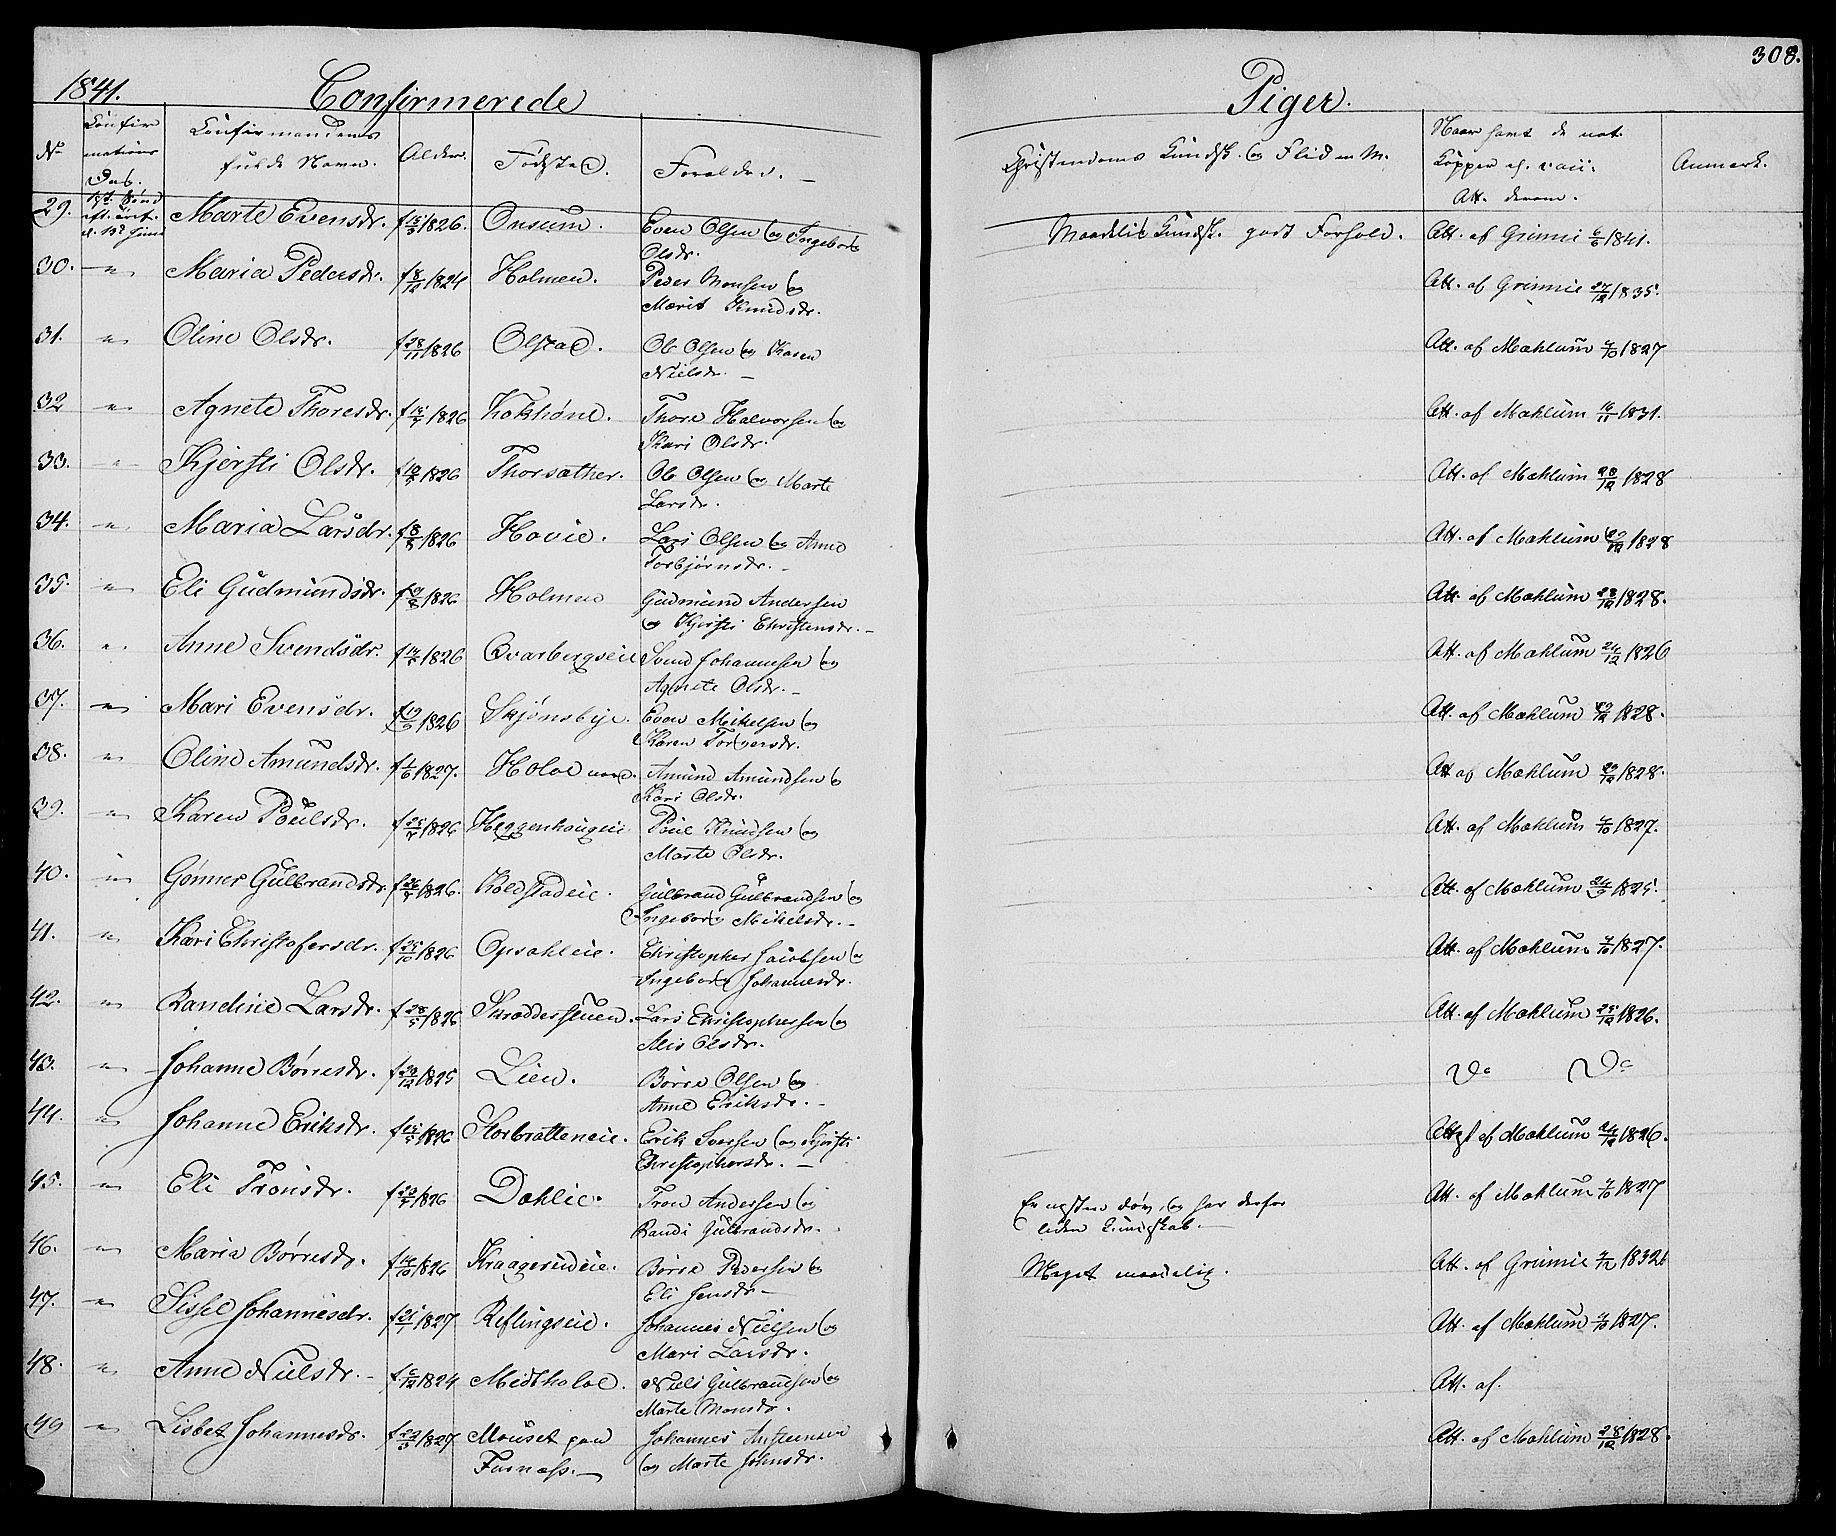 308.
1841. Confirmerede Piger.
No Confirmations Dag. Confirmandens fulde Navn. Alder. Fødsted. Forældre. Christendoms Kundsk. og Flid m. M. Naar havt de nat. Kopper el. vacc. Att. derom. Anmærk.
29. Marte Evensdr. f 1826. Onsum. Even Olsen og Ingeborg
Olsdr. Maadelig Kundsk. godt Forhold. Att. af Grimie 1841.
30. — " Maria Pedersdr. f 8/12 1824 Holmen. Peder Monsen og
Marit Knudsdr. Att. af Grimie 27/12 1835.
31. " Oline Olsdr. f 28/11 1826 Olstad. Ole Olsen og Karen
Nielsdr. — Att. af Mæhlum 4/10 1827
32 " Agnete Thoresdr. f 1826 Thore Halvorsen og
Kari Olsdr. Att. af Mæhlum 16/11 1831.
33. " Kjersti Olsdr. f 1826 Thorsæther. Ole Olsen og Marte
Larsdr. Att. af Mæhlum 28/12 1828
34. " Maria Larsdr. f 8/8 1826 Hovie. Lars Olsen og Anne
Torbjørnsdr. — Att. af Mæhlum 1828
35. " Eli Gudmundsdr. f 1826 Holmen Gudmund Andersen
og Kjersti Christensdr. — Att. af Mæhlum 28/12 1828.
36. " Anne Svendsdr. f 1826 Qvarbergseie Svend Johannesen og
Agnete Olsdr. — Att. af Mæhlum 24/12 1826
37. " Mari Evensdr. f 1826 Skjønsbye. Even Mikelsen og
Karen Torgersdr. Att. af Mæhlum 1828.
38. " Oline Amundsdr. f 1/6 1827. Holoe nord. Amund Amundsen o
Kari Olsdr. Att af Mæhlum 1828.
39. " Karen Poulsdr. f 1826 Heggenhougeie Poul Knudsen og
Marte Olsdr. Att. af Mæhlum 4/10 1827.
40. " Gønner Gulbrandsdr. f 1826. Koldstadeie. Gulbrand Gulbrandsen og
Ingeborg Mikelsdr. — Att. af Mæhlum 1825.
41. " Kari Christofersdr. f 25/10 1826 Opsahleie. Christopher Jacobsen og
Ingeborg Johannesdr. Att. af Mæhlum 4/10 1827.
42. " Randine Larsdr. f 28/5 1826 Skrædderstuen. Lars Christophersen og
Alis Olsdr. Att. af Mæhlum 25/12 1826.
43. " Johanne Børresdr. f 20/12 1825 Lien. Børre Olsen og
Anne Eriksdr. — Do Do
44. " Johanne Eriksdr. f 1826 Storbratteneie. Erik Iversen og Kjersti
Christophersdr. — Attest af Mæhlum 24/12 1826.
45. " Eli Tronsdr. f 1826 Dæhlie. Tron Andersen og
Randi Gulbrandsdr. Er næsten døv, og har derfor
liden Kundskab. — Att. af Mæhlum 4/10 1827
46. " Maria Børresdr. f 1826 Kraagerudeie. Børre Pedersen og
Eli Jensdr — Meget maadelig. Att. af Grimie 1832
47. " Sissel Johannesdr. f 21/1 1827 Reflingseie. Johannes Nielsen og
Mari Larsdr. Att. af Mæhlum 4/10 1827.
48. " Anne Nielsdr. — f 6/12 1824 Midtholoe. Niels Gulbrandsen og
Marte Monsdr. Att. af.
49 " Lisbet Johannesdr. f 22/3 1827 Mouset paa
Furnæss. — Johannes
og Marte Johnsdr. Att. af Mæhlum 28/12 1828.